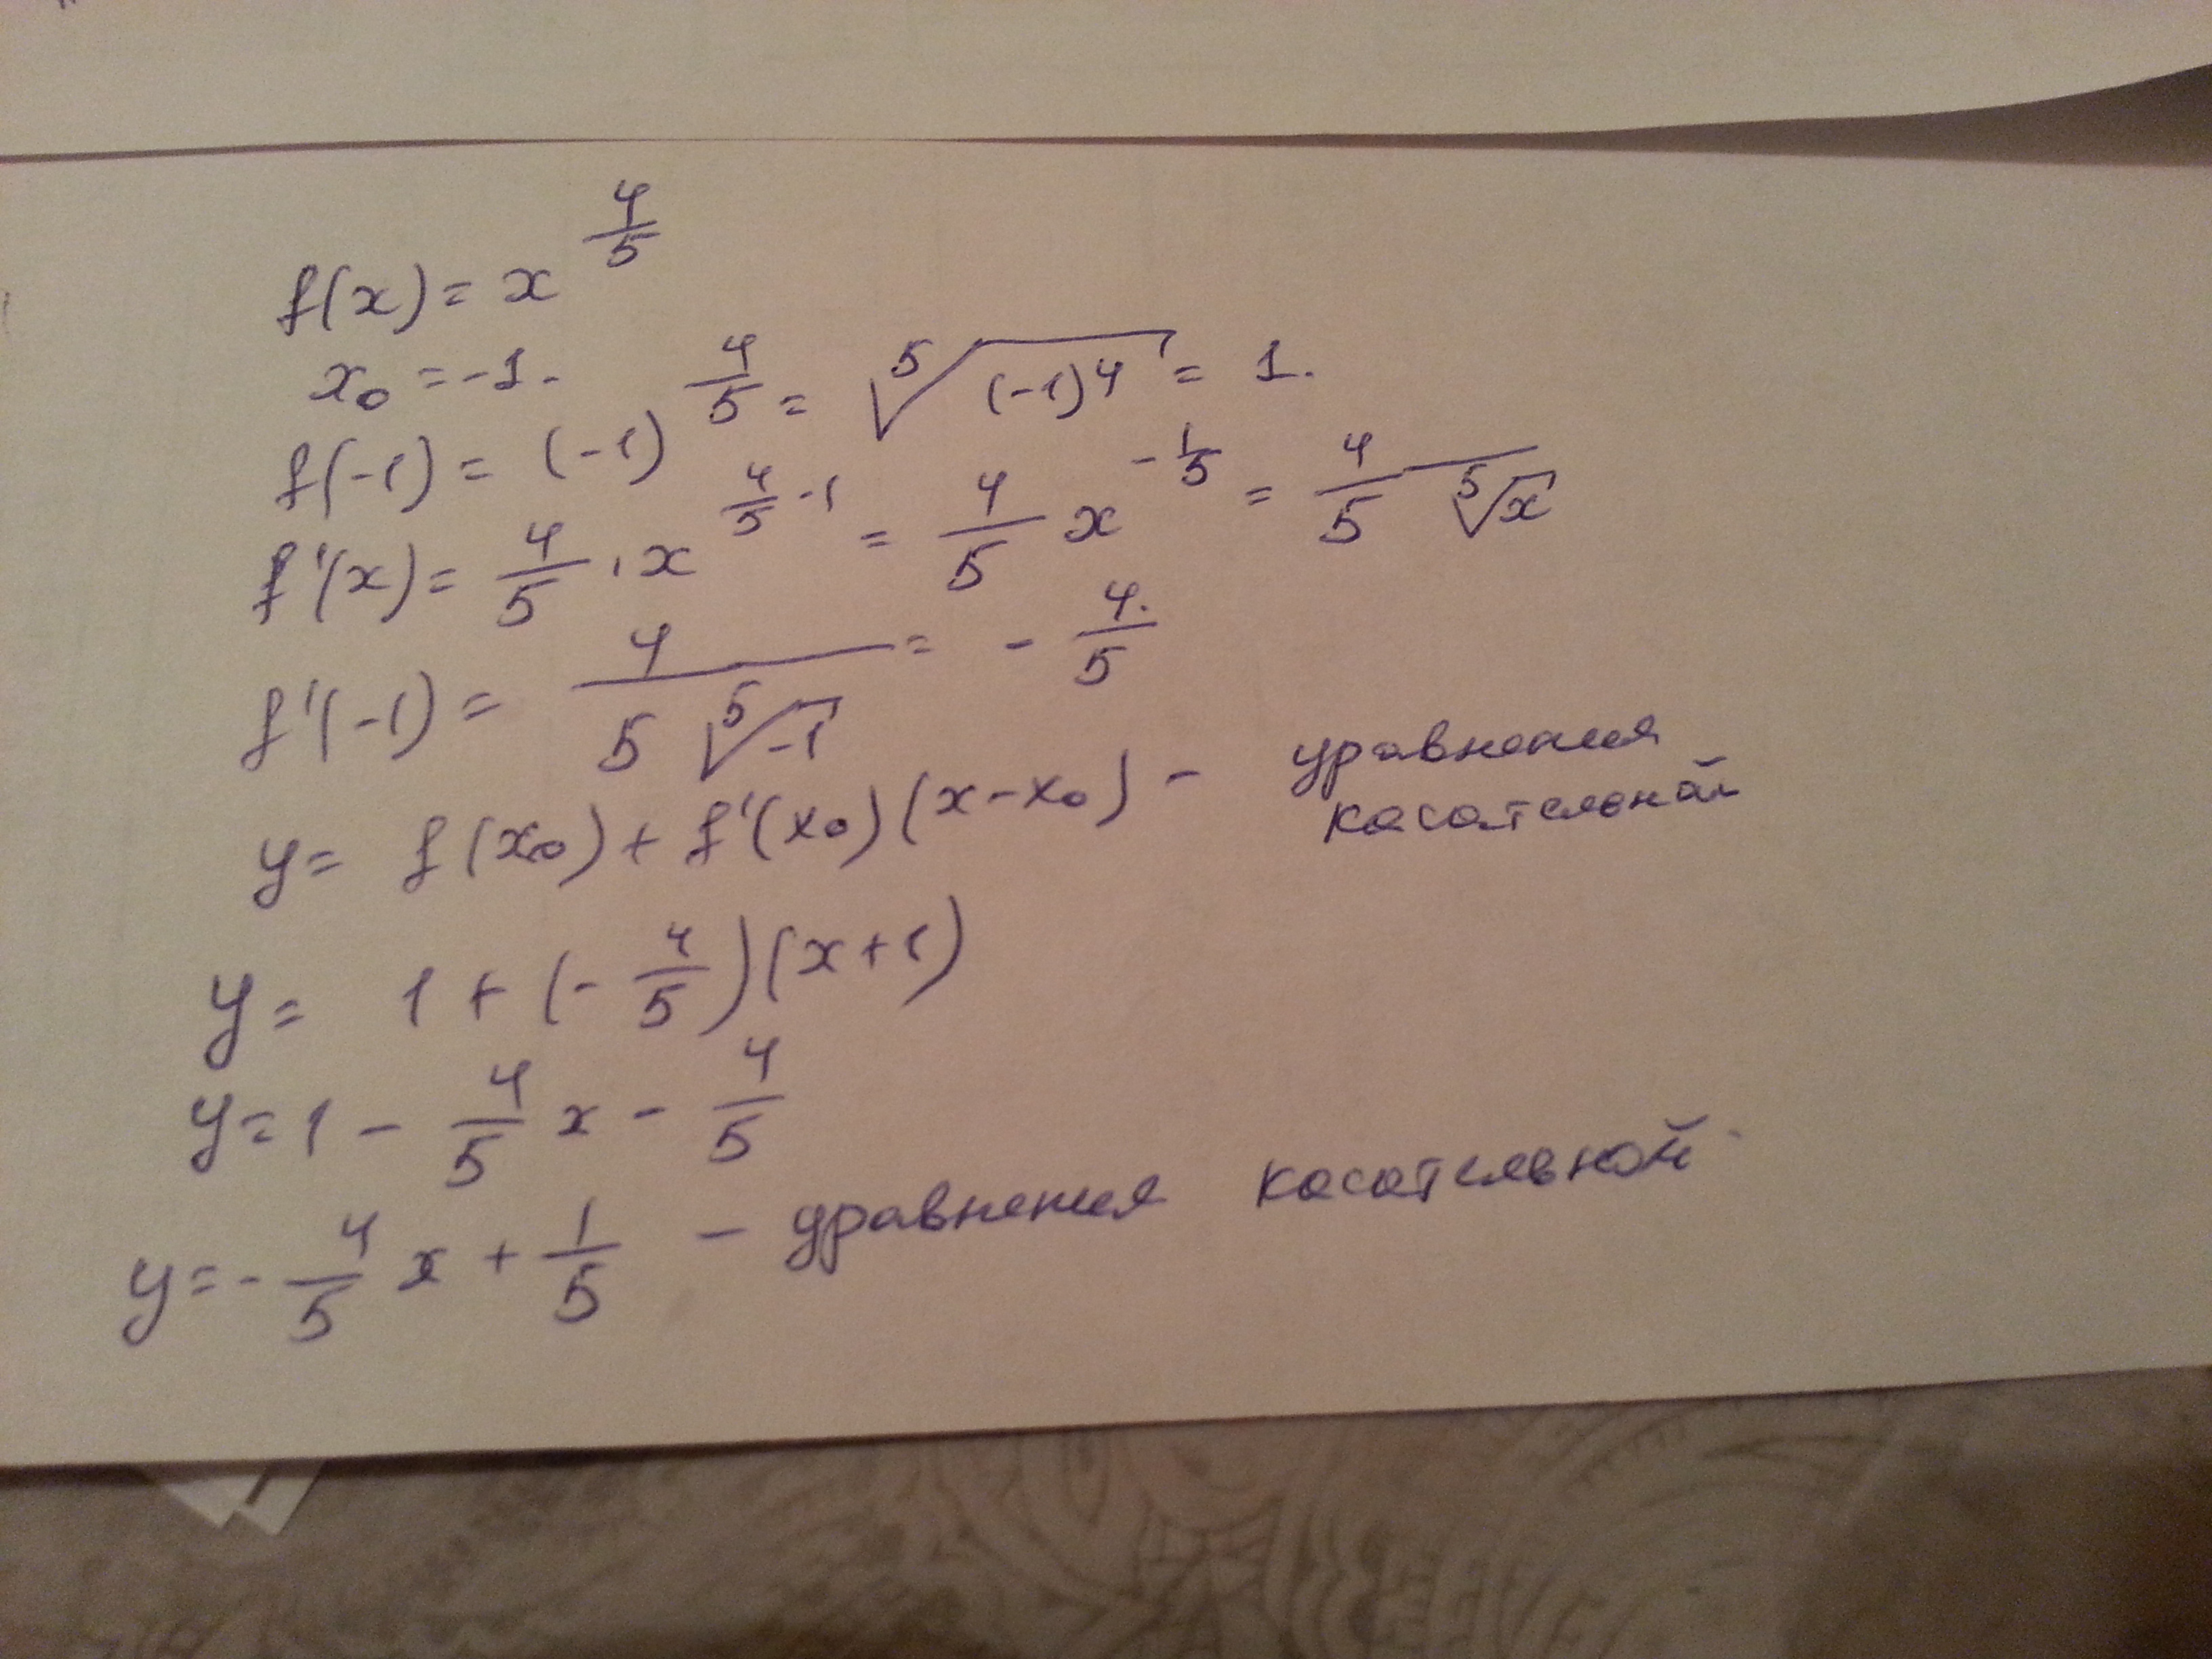 f(x) = x^(4/5)
x₀ = -1.
f(-1) = (-1)^(4/5) = ⁵√((-1)⁴) = 1.
f'(x) = 4/5 · x^(4/5 - 1) = 4/5 x^(-1/5) = 4/(5 ⁵√x)
f'(-1) = 4/(5 ⁵√(-1)) = - 4/5.
y = f(x₀) + f'(x₀)(x - x₀) - уравнения
касательной
y = 1 + (- 4/5)(x + 1)
y = 1 - 4/5 x - 4/5
y = - 4/5 x + 1/5 - уравнения касательной.